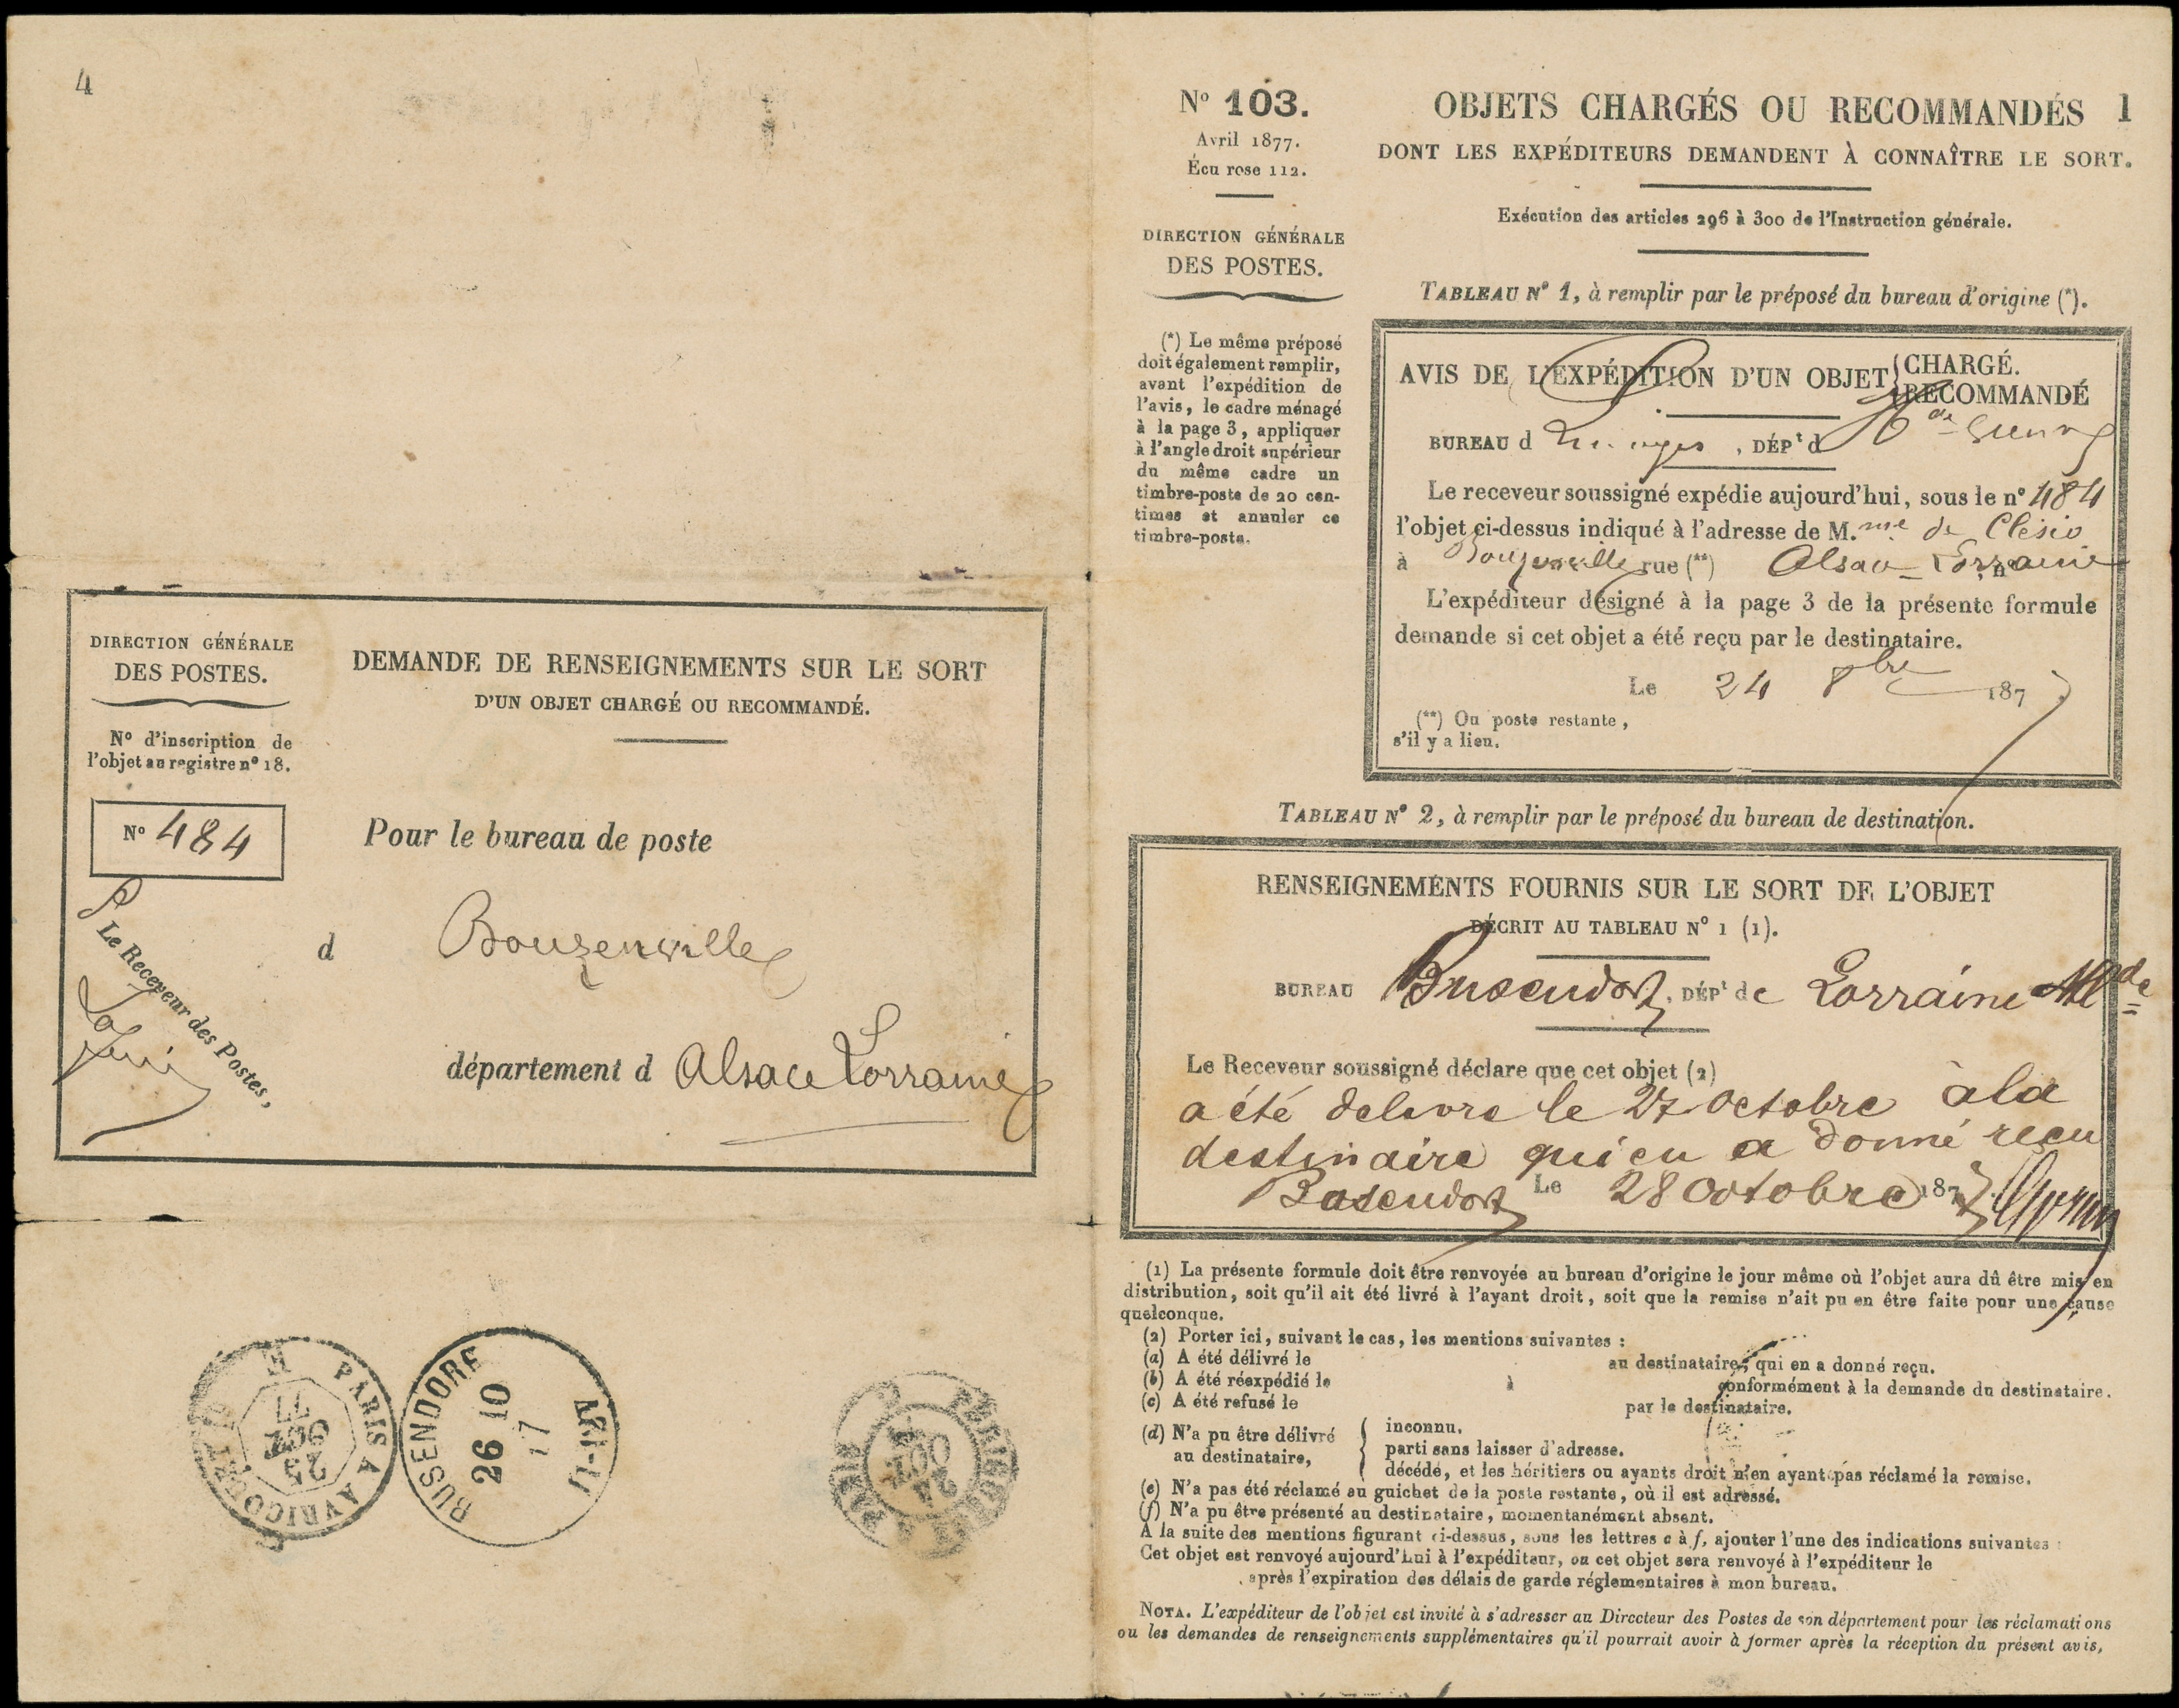 4
DIRECTION GÉNÉRALE
DES POSTES.
N° d'inscription de
l'objet au registre n° 18.
N° 484
Le Receveur des Postes,
DEMANDE DE RENSEIGNEMENTS SUR LE SORT
D'UN OBJET CHARGÉ OU RECOMMANDÉ.
Pour le bureau de poste
d Bouzenville
département d Alsace Lorraine
PARIS A AVRICOURT
25
OCT
77
BUSENDORF
26 10
77
OCT
N° 103.
Avril 1877.
Écu rose 112.
DIRECTION GÉNÉRALE
DES POSTES.
(*) Le même préposé
doit également remplir,
avant l'expédition de
l'avis, le cadre ménagé
à la page 3, appliquer
à l'angle droit supérieur
du même cadre un
timbre-poste de 20 cen-
times et annuler ce
timbre-poste.
OBJETS CHARGÉS OU RECOMMANDÉS 1
DONT LES EXPÉDITEURS DEMANDENT À CONNAÎTRE LE SORT.
Exécution des articles 296 à 300 de l'Instruction générale.
TABLEAU N° 1, à remplir par le préposé du bureau d'origine (*).
AVIS DE L'EXPÉDITION D'UN OBJET { CHARGÉ.
RECOMMANDÉ
BUREAU d Limoges, DÉPt d Hte Vienne
Le receveur soussigné expédie aujourd'hui, sous le n° 484
l'objet ci-dessus indiqué à l'adresse de M.me de Clésio
à Bouzenville rue (**) Alsace-Lorraine n°
L'expéditeur désigné à la page 3 de la présente formule
demande si cet objet a été reçu par le destinataire.
Le 24 8bre 1877
(**) Ou poste restante,
s'il y a lieu.
TABLEAU N° 2, à remplir par le préposé du bureau de destination.
RENSEIGNEMENTS FOURNIS SUR LE SORT DE L'OBJET
DÉCRIT AU TABLEAU N° 1 (1).
BUREAU Busendorf, DÉPt de Lorraine Allde
Le Receveur soussigné déclare que cet objet (2)
a été delivré le 27 Octobre à la
destinaire qui en a donné reçu
Busendorf Le 28 Octobre 1877
(1) La présente formule doit être renvoyée au bureau d'origine le jour même où l'objet aura dû être mis en
distribution, soit qu'il ait été livré à l'ayant droit, soit que la remise n'ait pu en être faite pour une cause
quelconque.
(2) Porter ici, suivant le cas, les mentions suivantes :
(a) A été délivré le au destinataire, qui en a donné reçu.
(b) A été réexpédié le à conformément à la demande du destinataire.
(c) A été refusé le par le destinataire.
(d) N'a pu être délivré
au destinataire, { inconnu.
parti sans laisser d'adresse.
décédé, et les héritiers ou ayants droit n'en ayant pas réclamé la remise.
(e) N'a pas été réclamé au guichet de la poste restante, où il est adressé.
(f) N'a pu être présenté au destinataire, momentanément absent.
A la suite des mentions figurant ci-dessus, sous les lettres c à f, ajouter l'une des indications suivantes :
Cet objet est renvoyé aujourd'hui à l'expéditeur, ou cet objet sera renvoyé à l'expéditeur le
après l'expiration des délais de garde réglementaires à mon bureau.
NOTA. L'expéditeur de l'objet est invité à s'adresser au Directeur des Postes de son département pour les réclamations
ou les demandes de renseignements supplémentaires qu'il pourrait avoir à former après la réception du présent avis,